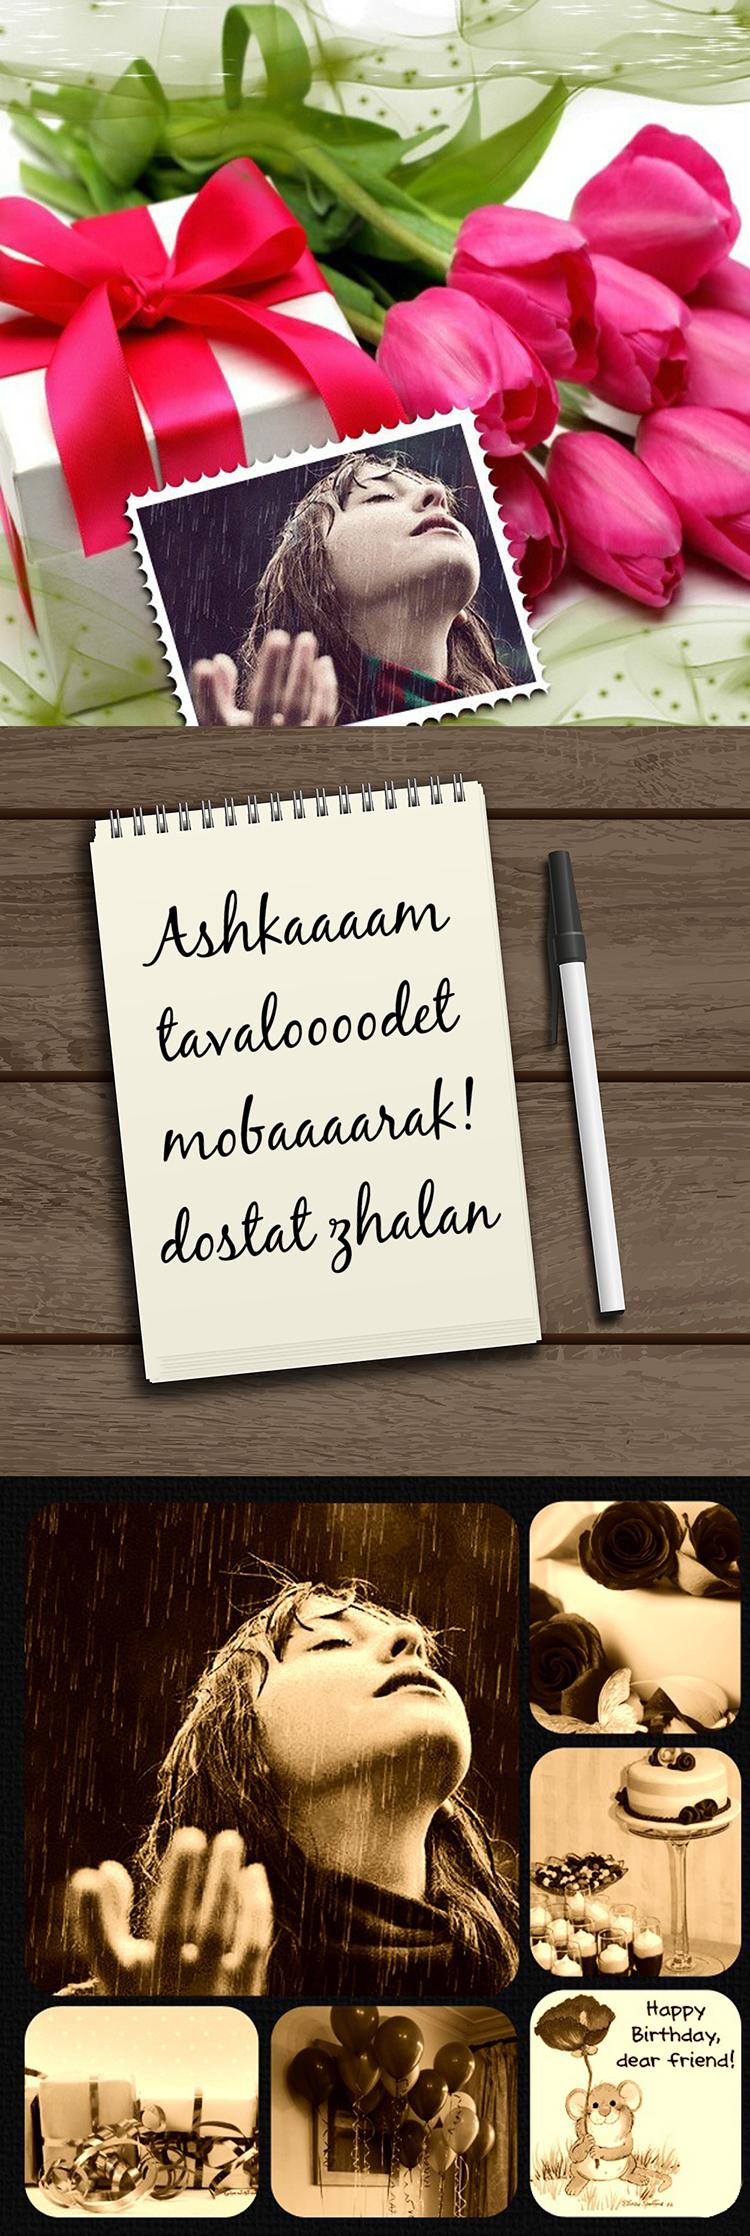 Ashkaaaam
tavaloooodet
mobaaaarak!
dostat zhalan
Happy
Birthday,
dear friend!